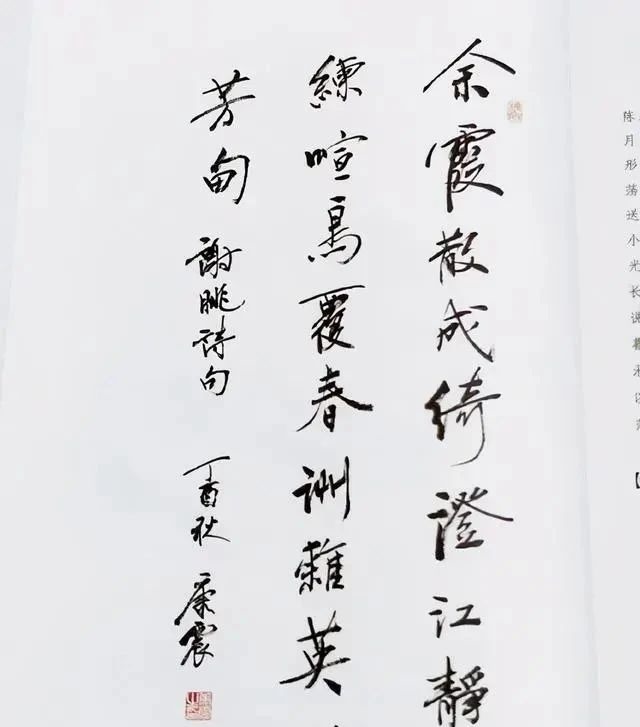 余霞散成綺澄江靜
練喧鳥覆春洲雜英
芳甸 謝朓詩句 丁酉秋 康震
陈
月
形
荡
送
小
光
长
说